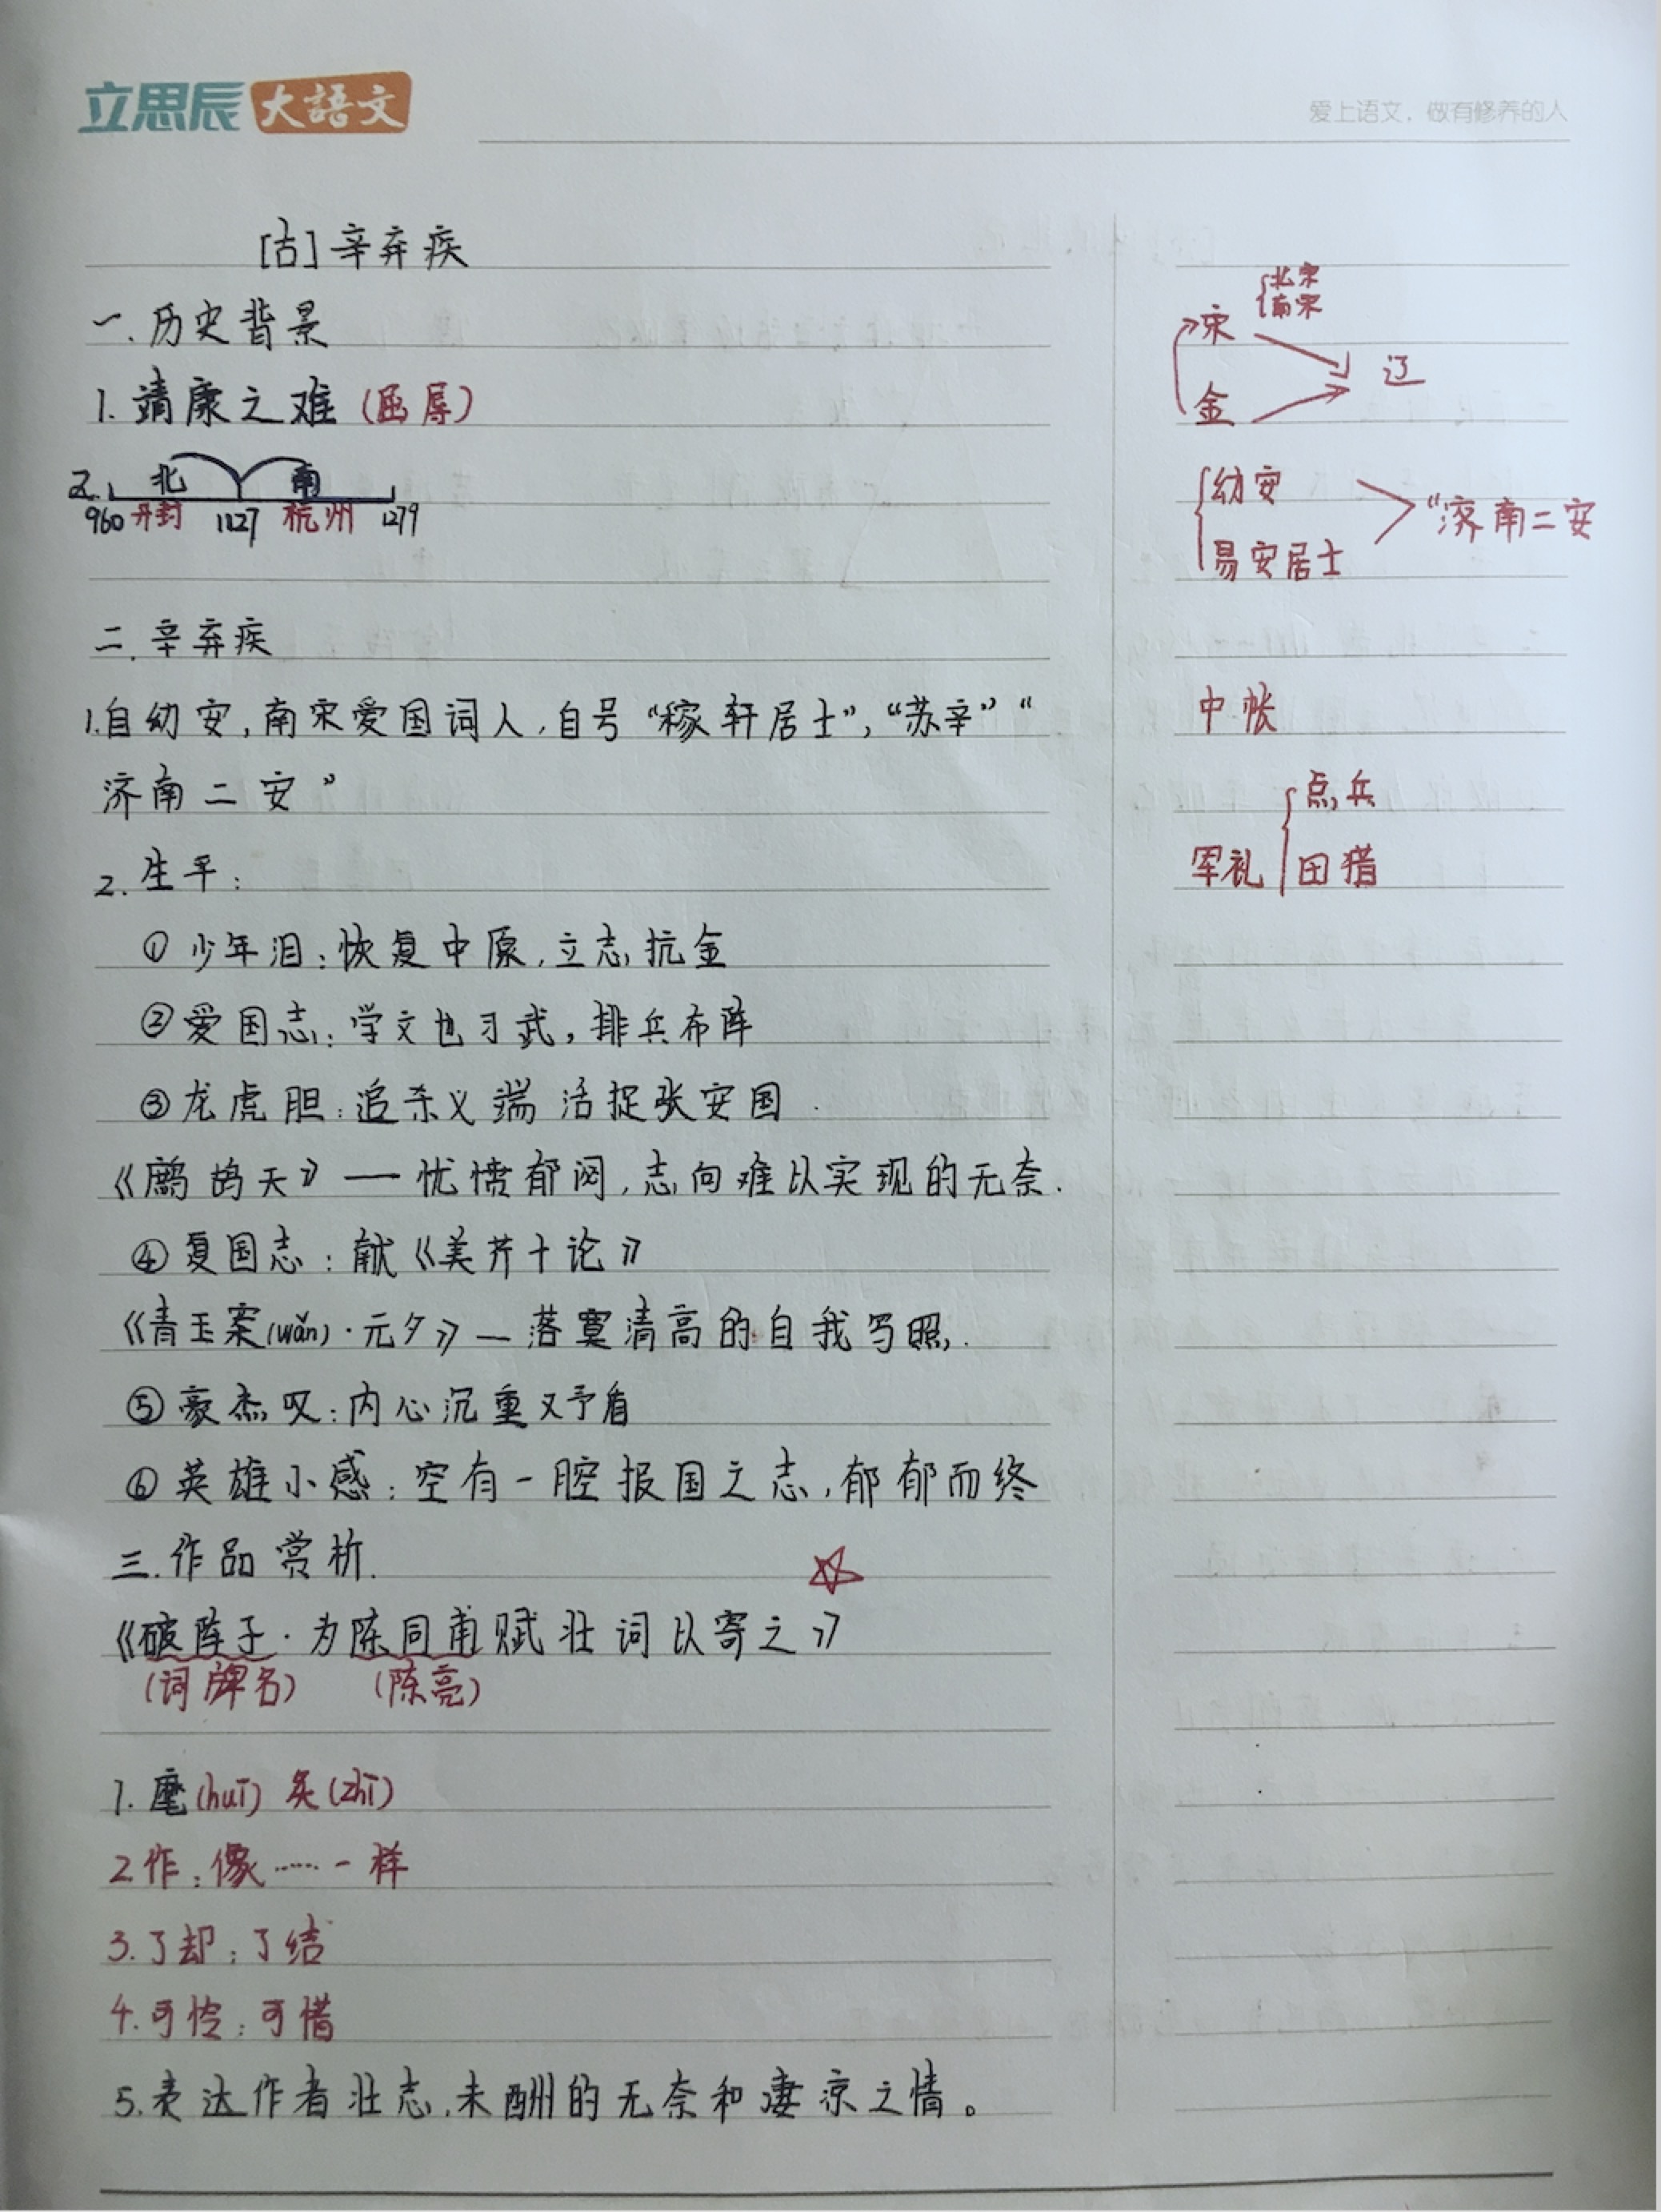 立思辰 大語文
爱上语文，做有修养的人
[古] 辛弃疾
一. 历史背景
1. 靖康之难 (屈辱)
2. 北 南
960 开封 1127 杭州 1279
二. 辛弃疾
1. 自幼安, 南宋爱国词人, 自号 "稼轩居士", "苏辛" "
济南二安"
2. 生平:
① 少年泪: 恢复中原, 立志抗金
② 爱国志: 学文也习武, 排兵布阵
③ 龙虎胆: 追杀义端 活捉张安国
《鹧鸪天》— 忧愤郁闷, 志向难以实现的无奈.
④ 复国志: 献《美芹十论》
《青玉案(wǎn)·元夕》— 落寞清高的自我写照.
⑤ 豪杰叹: 内心沉重又矛盾
⑥ 英雄小感: 空有一腔报国之志, 郁郁而终
三. 作品赏析.
《破阵子·为陈同甫赋壮词以寄之》
(词牌名) (陈亮)
1. 麾(huī) 炙(zhī)
2. 作: 像……一样
3. 了却: 了结
4. 可怜: 可惜
5. 表达作者壮志, 未酬的无奈和凄凉之情。
北宋
南宋
宋
辽
金
幼安
"济南二安
易安居士
中帐
点兵
军礼 田猎